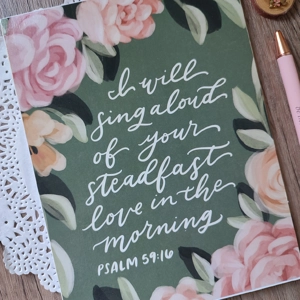 I will
sing aloud
of your
steadfast
love in the
morning
PSALM 59:16